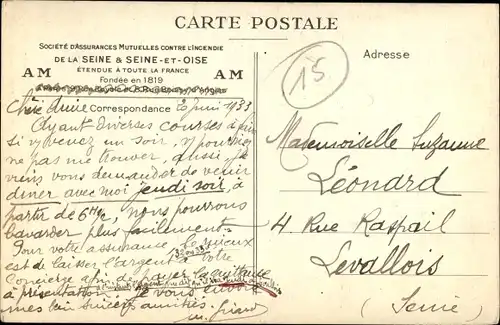 CARTE POSTALE
SOCIÉTÉ D'ASSURANCES MUTUELLES CONTRE L'INCENDIE
DE LA SEINE & SEINE-ET-OISE
ÉTENDUE À TOUTE LA FRANCE
AM Fondée en 1819 AM
Adresse
15
Chère Amie Correspondance Juin 1933
Ayant diverses courses à faire
si vs venez un soir, vs pourriez
ne pas me trouver, aussi je
viens vous demander de venir
dîner avec moi jeudi soir, à
partir de 6H, nous pourrons
bavarder plus facilement.
Pour votre assurance, le mieux
est de laisser l'argent à votre
Concierge afin de payer la quittance
à présentation. je vous envoie
mes sincères amitiés.
Mademoiselle Suzanne
Léonard
4 Rue Raspail
Levallois
(Seine)